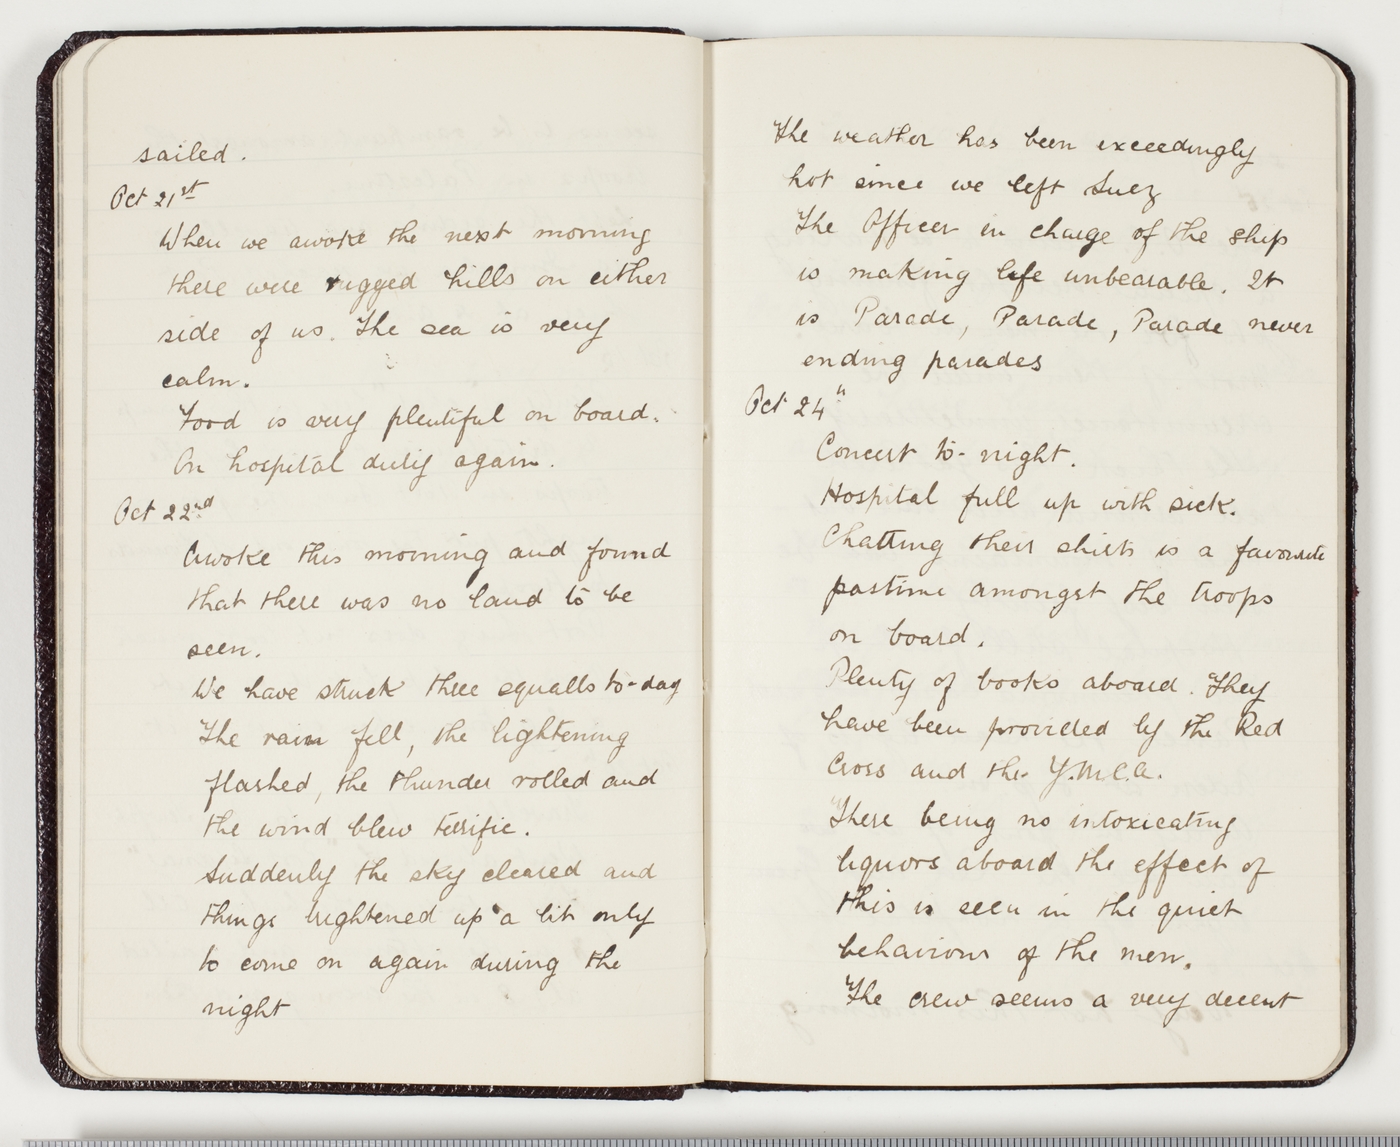 sailed.
Oct 21st
When we awoke the next morning
there were rugged hills on either
side of us. The sea is very
calm.
Food is very plentiful on board.
On hospital duty again.
Oct 22nd
Awoke this morning and found
that there was no land to be
seen.
We have struck three squalls to-day
The rain fell, the lightening
flashed, the thunder rolled and
the wind blew terrific.
Suddenly the sky cleared and
things brightened up a bit only
to come on again during the
night
The weather has been exceedingly
hot since we left Suez
The Officer in charge of the ship
is making life unbearable. It
is Parade, Parade, Parade never
ending parades
Oct 24th
Concert to-night.
Hospital full up with sick.
Chatting their shirts is a favourite
pastime amongst the troops
on board.
Plenty of books aboard. They
have been provided by the Red
Cross and the Y.M.C.A.
There being no intoxicating
liquors aboard the effect of
this is seen in the quiet
behaviour of the men.
The crew seems a very decent